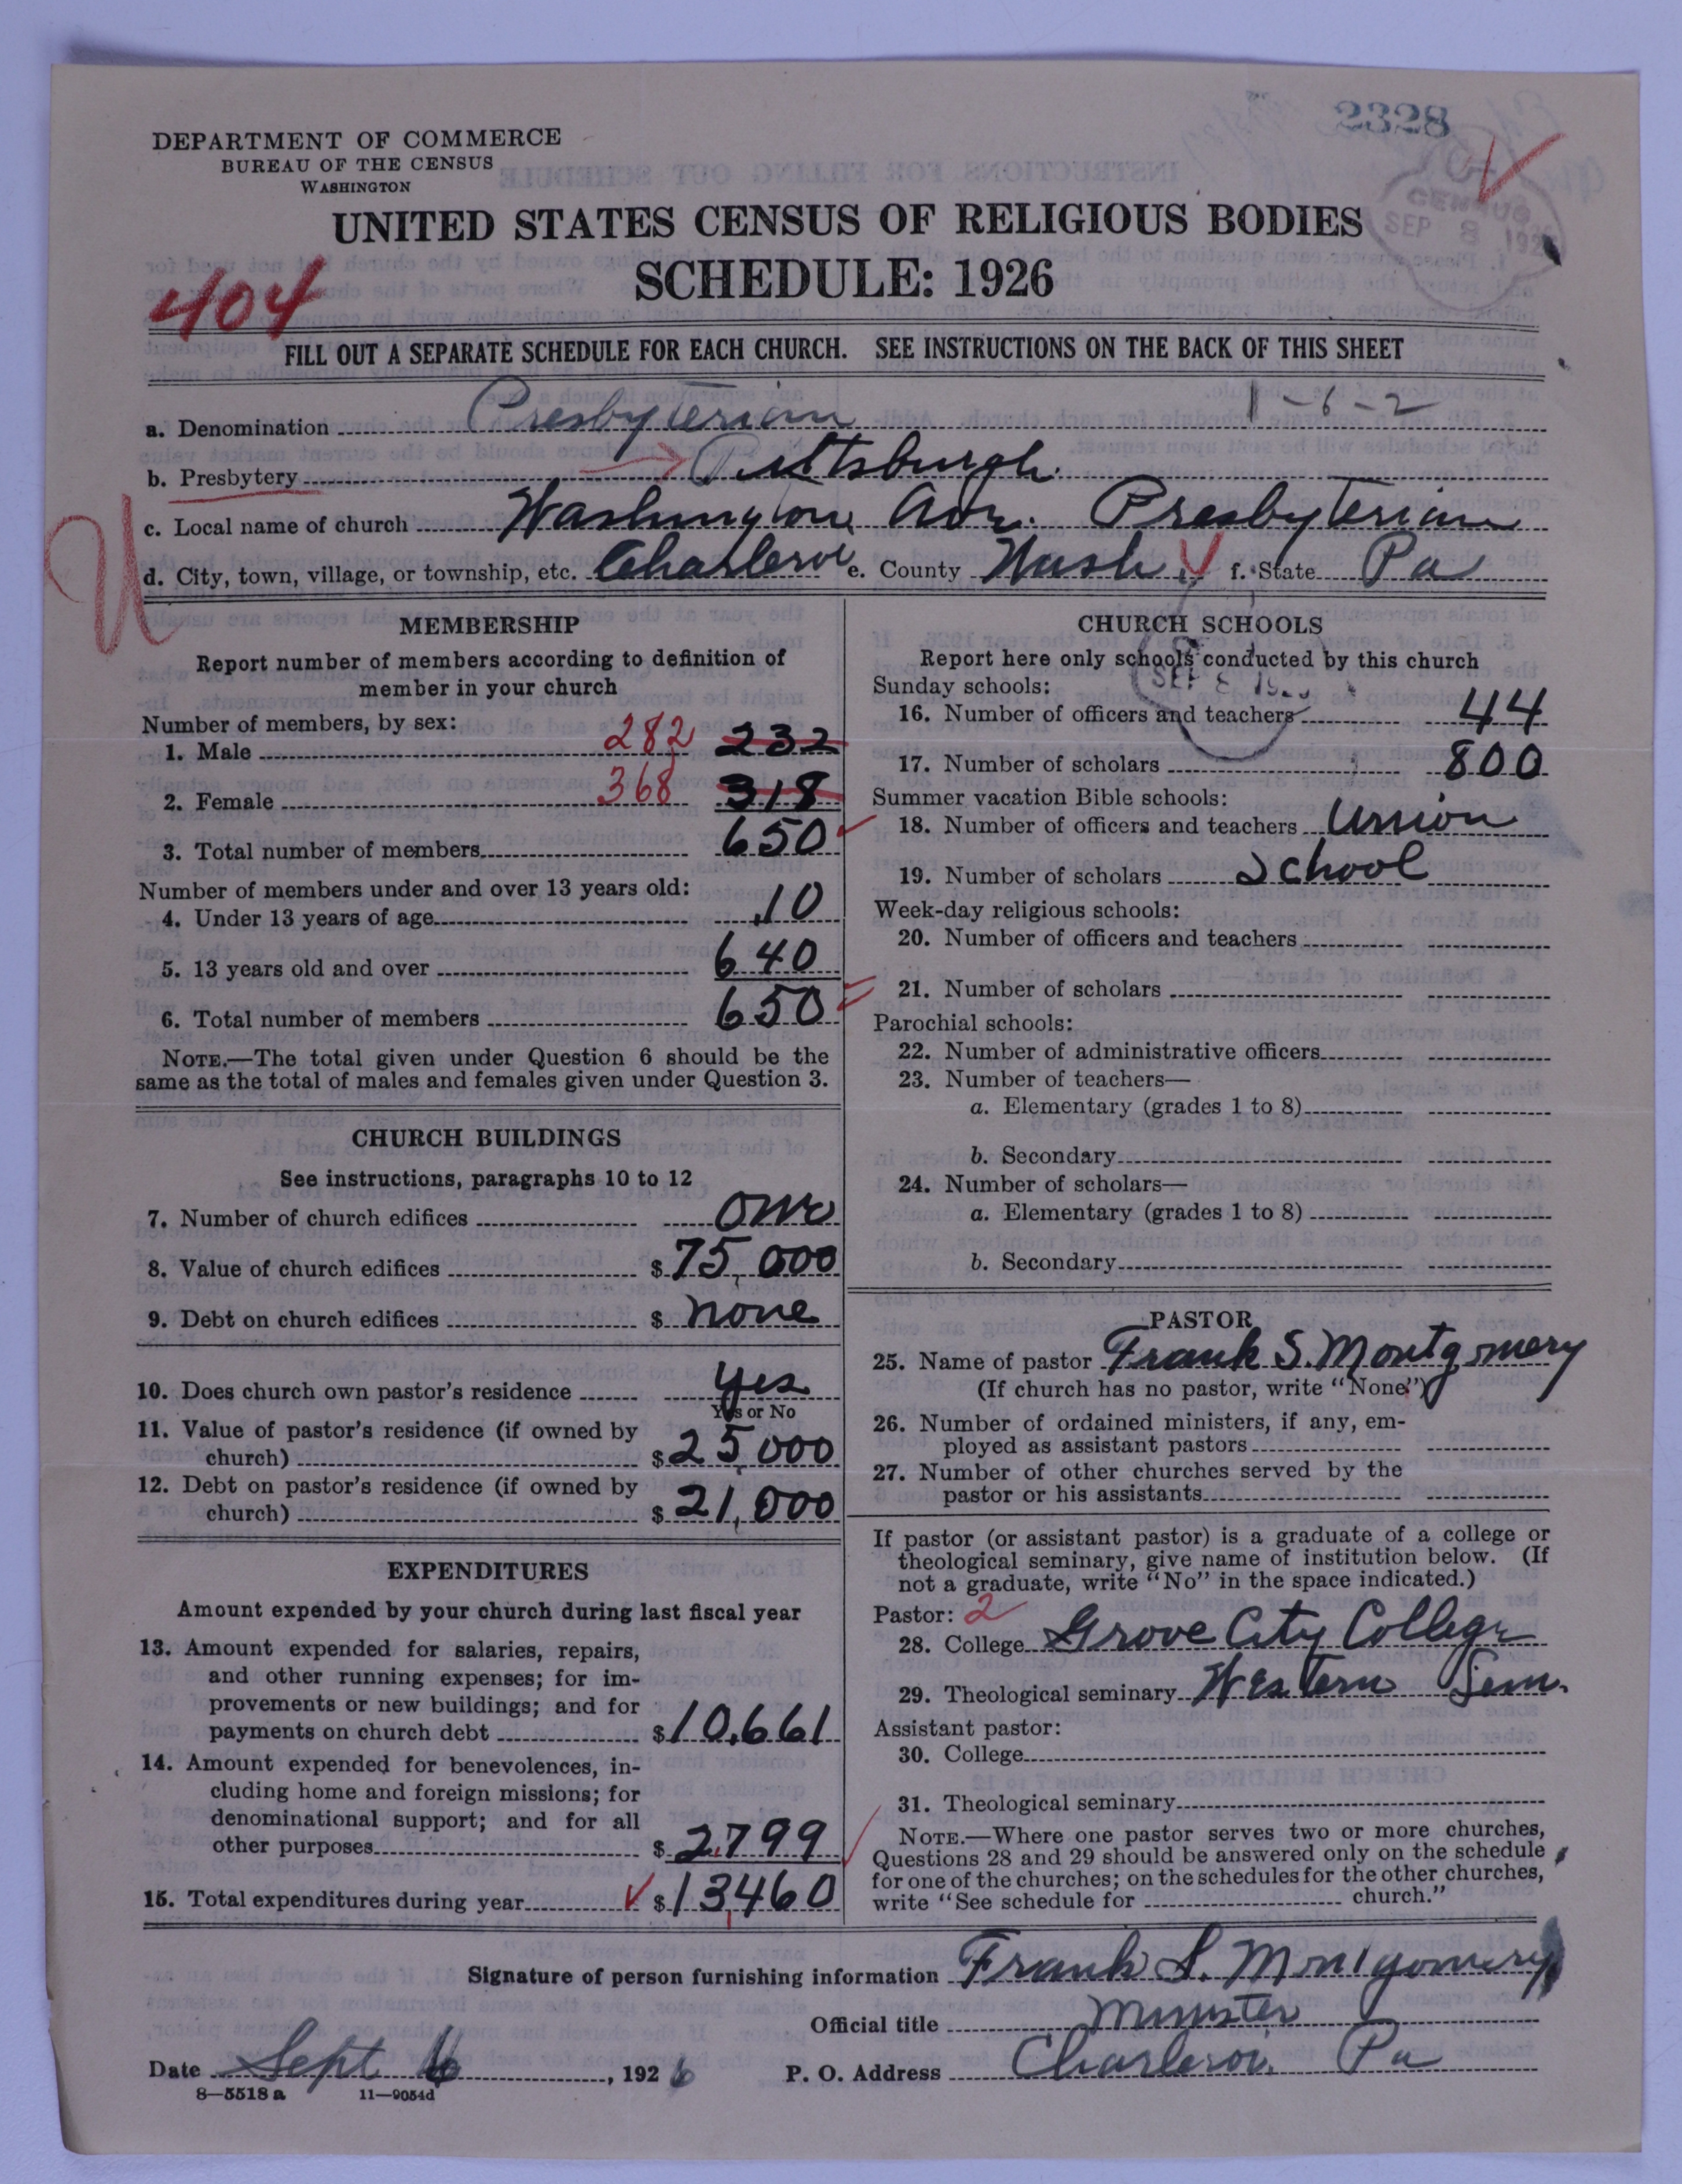 2328
DEPARTMENT OF COMMERCE
BUREAU OF THE CENSUS
WASHINGTON
CENSUS
SEP 8 192
UNITED STATES CENSUS OF RELIGIOUS BODIES
SCHEDULE: 1926
404
FILL OUT A SEPARATE SCHEDULE FOR EACH CHURCH. SEE INSTRUCTIONS ON THE BACK OF THIS SHEET
1-6-2
a. Denomination Presbyterian
b. Presbytery Pittsburgh
c. Local name of church Washington Ave. Presbyterian
d. City, town, village, or township, etc. Charleroi e. County Wash. f. State Pa
U
MEMBERSHIP
Report number of members according to definition of
member in your church
Number of members, by sex:
1. Male 282 232
2. Female 368 318
3. Total number of members 650
Number of members under and over 13 years old:
4. Under 13 years of age 10
5. 13 years old and over 640
6. Total number of members 650
NOTE.—The total given under Question 6 should be the
same as the total of males and females given under Question 3.
CHURCH BUILDINGS
See instructions, paragraphs 10 to 12
7. Number of church edifices one
8. Value of church edifices $ 75,000
9. Debt on church edifices $ none
10. Does church own pastor's residence yes
Yes or No
11. Value of pastor's residence (if owned by
church) $ 25,000
12. Debt on pastor's residence (if owned by
church) $ 21,000
EXPENDITURES
Amount expended by your church during last fiscal year
13. Amount expended for salaries, repairs,
and other running expenses; for im-
provements or new buildings; and for
payments on church debt $ 10,661
14. Amount expended for benevolences, in-
cluding home and foreign missions; for
denominational support; and for all
other purposes $ 2,799
15. Total expenditures during year $ 13,460
CHURCH SCHOOLS
Report here only schools conducted by this church
SEP 8 192
Sunday schools:
16. Number of officers and teachers 44
17. Number of scholars 800
Summer vacation Bible schools:
18. Number of officers and teachers Union
19. Number of scholars School
Week-day religious schools:
20. Number of officers and teachers
21. Number of scholars
Parochial schools:
22. Number of administrative officers
23. Number of teachers—
a. Elementary (grades 1 to 8)
b. Secondary
24. Number of scholars—
a. Elementary (grades 1 to 8)
b. Secondary
PASTOR
25. Name of pastor Frank S. Montgomery
(If church has no pastor, write "None")
26. Number of ordained ministers, if any, em-
ployed as assistant pastors
27. Number of other churches served by the
pastor or his assistants
If pastor (or assistant pastor) is a graduate of a college or
theological seminary, give name of institution below. (If
not a graduate, write "No" in the space indicated.)
Pastor: 2
28. College Grove City College
29. Theological seminary Western Sem.
Assistant pastor:
30. College
31. Theological seminary
NOTE.—Where one pastor serves two or more churches,
Questions 28 and 29 should be answered only on the schedule
for one of the churches; on the schedules for the other churches,
write "See schedule for church."
Signature of person furnishing information Frank S. Montgomery
Official title Minister
Date Sept 6, 1926 P. O. Address Charleroi Pa
8—5518 a 11—9054d